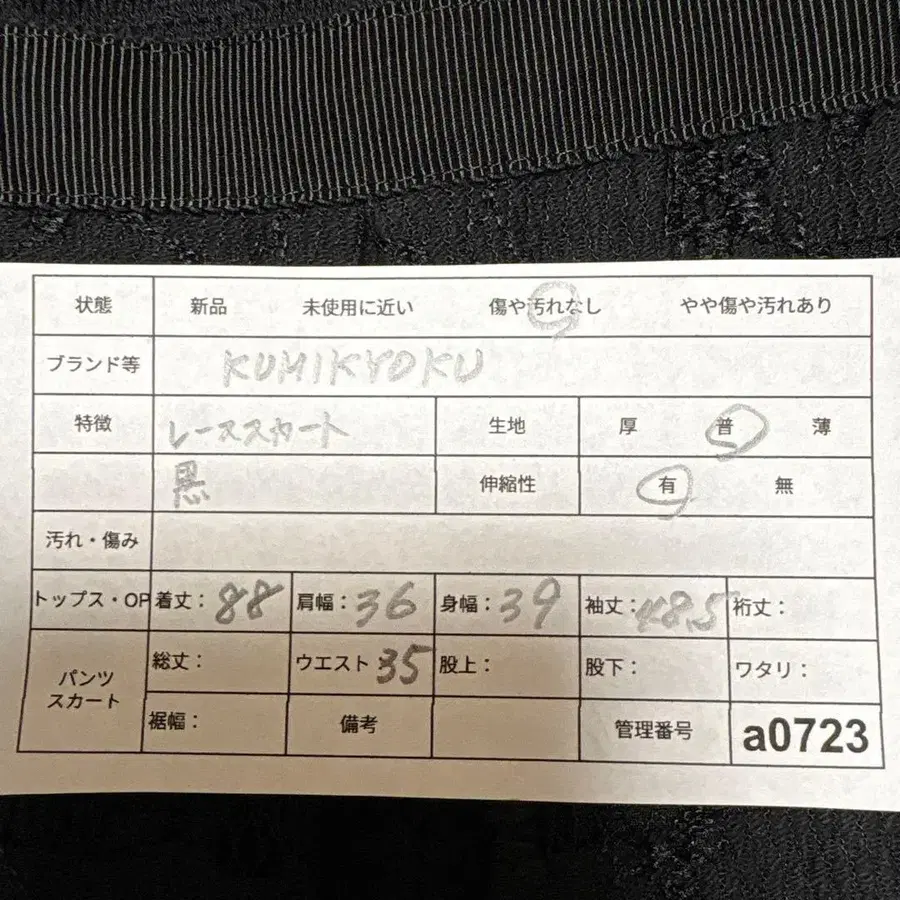 状態 新品 未使用に近い 傷や汚れなし やや傷や汚れあり
ブランド等 KUMIKYOKU
特徴 レーススカート 生地 厚 普 薄
黒 伸縮性 有 無
汚れ・傷み
トップス・OP 着丈: 88 肩幅: 36 身幅: 39 袖丈: 48.5 裄丈:
パンツ
スカート
総丈: ウエスト: 35 股上: 股下: ワタリ:
裾幅: 備考 管理番号 a0723